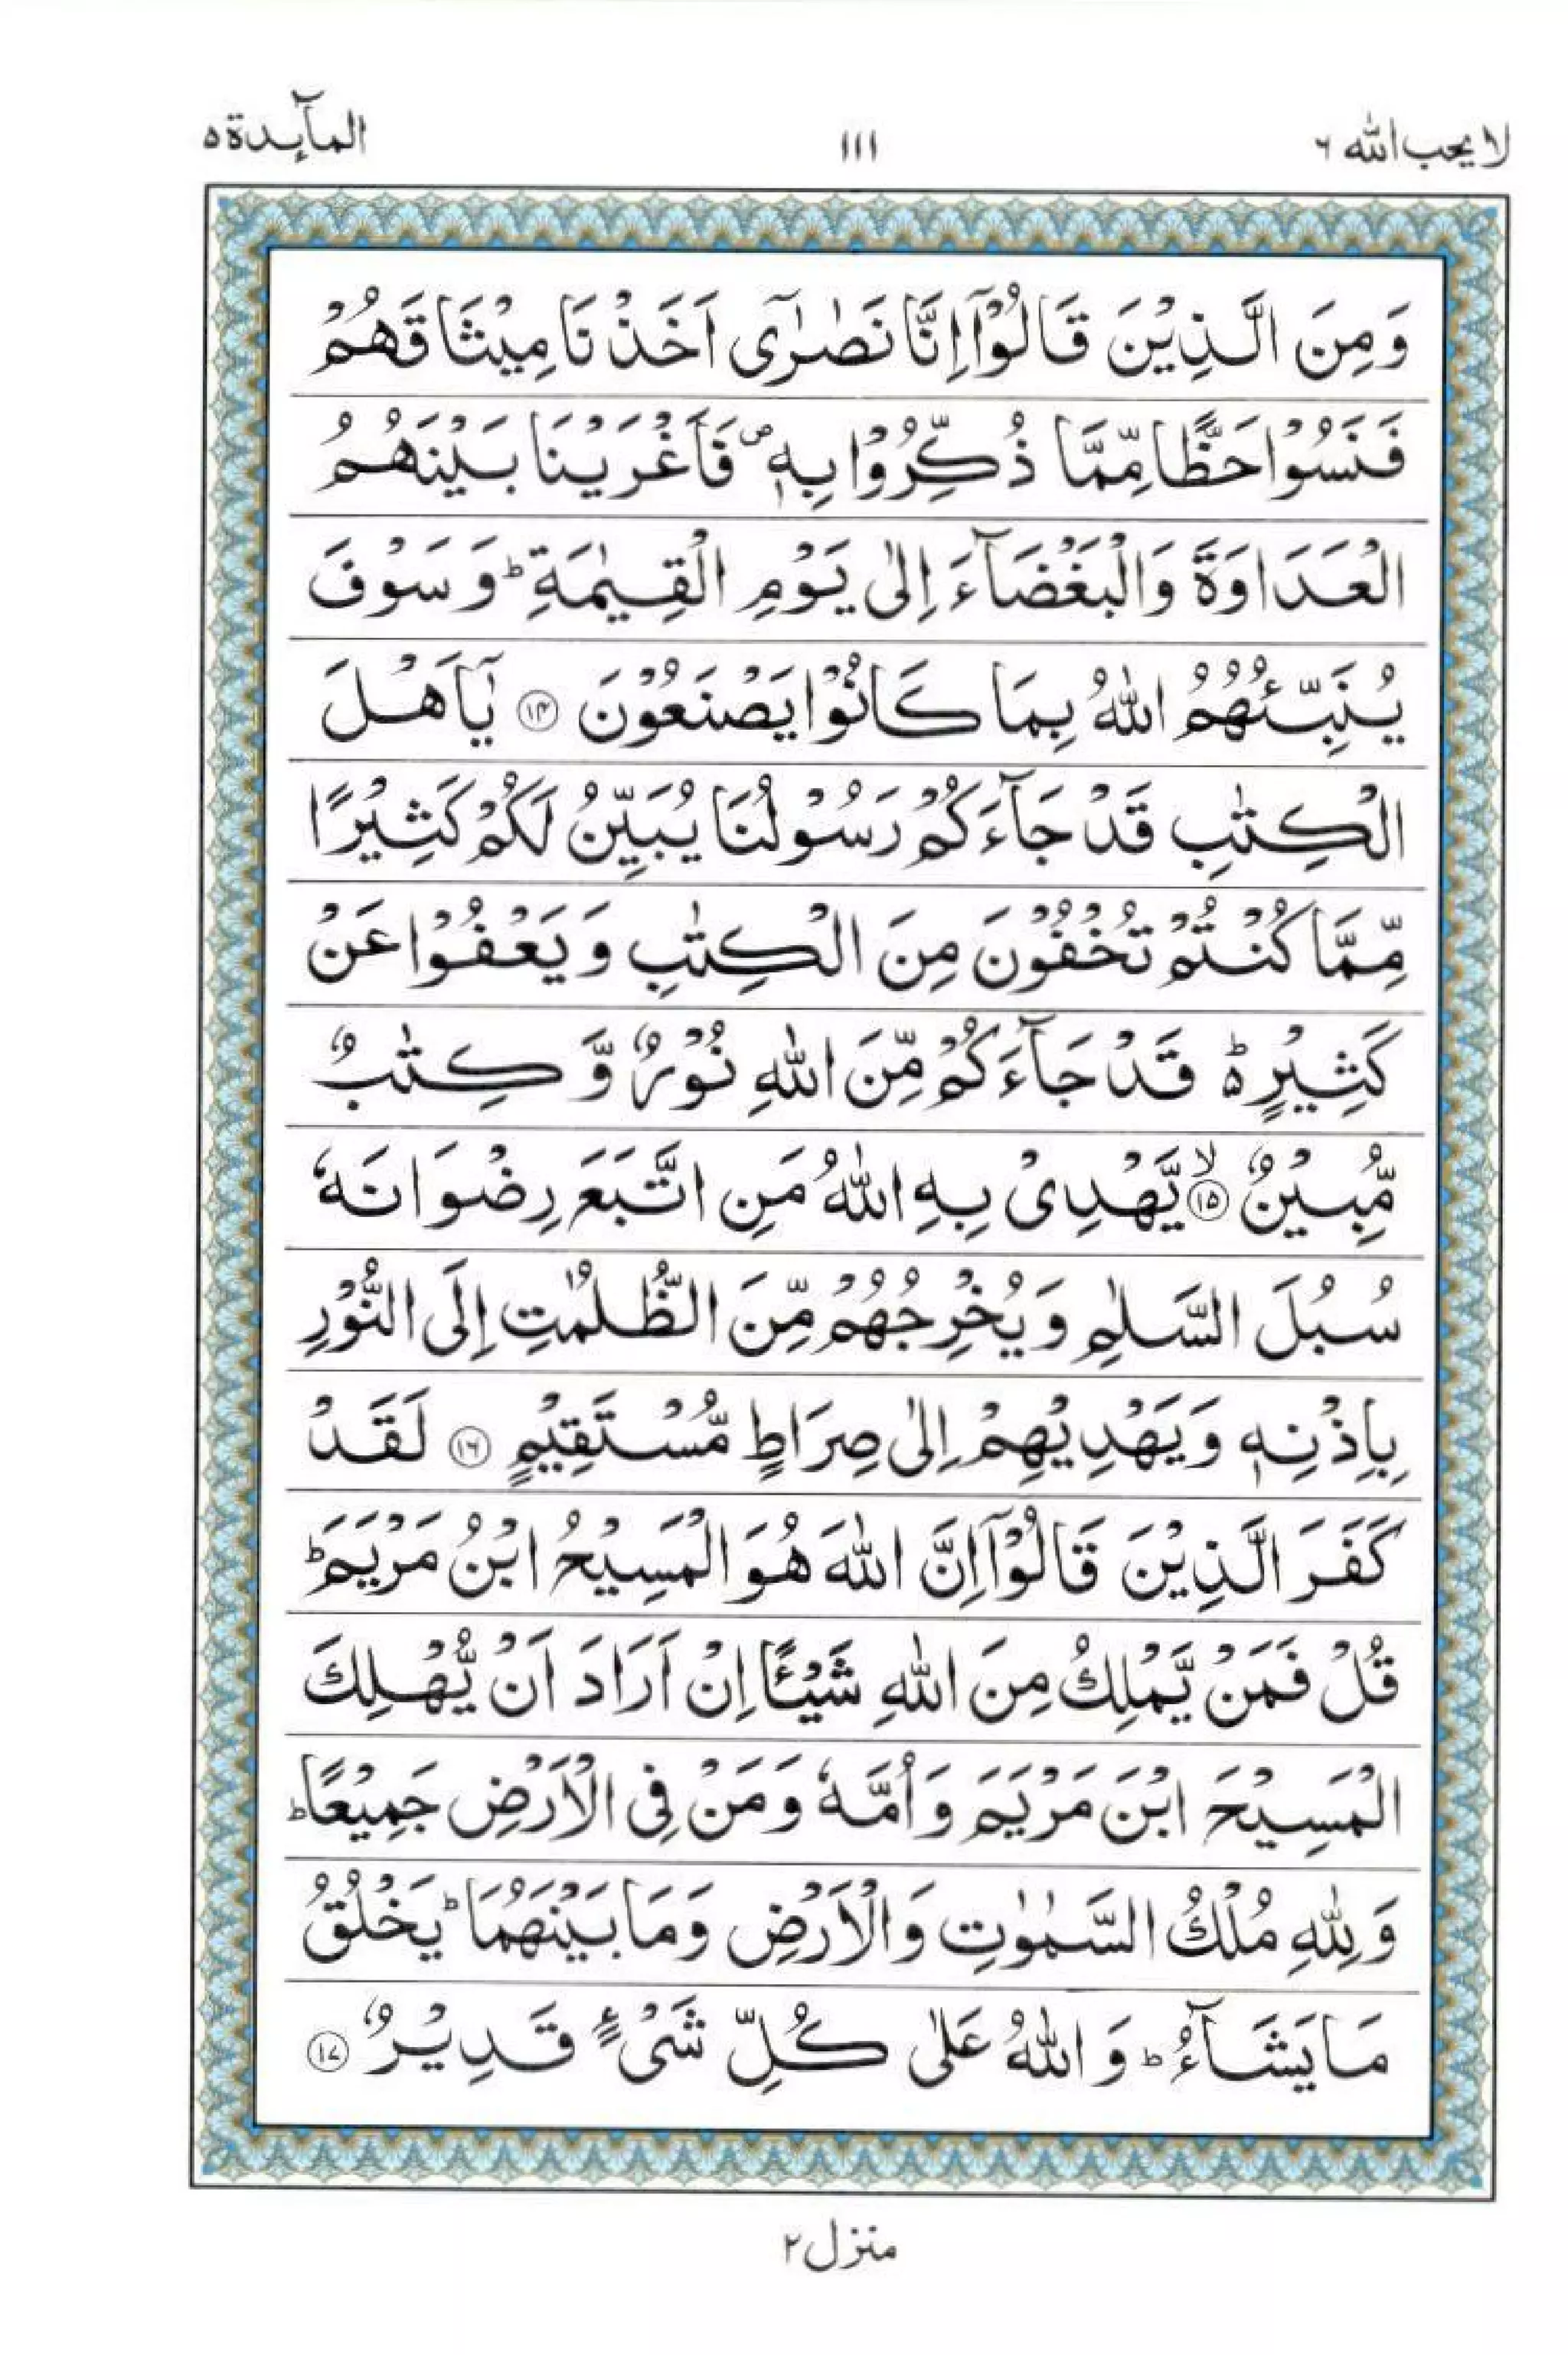 لا يحب الله ٦ ١١١ المآىِٕدة ٥
وَمِنَ الَّذِيْنَ قَالُوْۤا اِنَّا نَصٰرٰۤى اَخَذْنَا مِيْثَاقَهُمْ
فَنَسُوْا حَظًّا مِّمَّا ذُكِّرُوْا بِهٖ ۪ فَاَغْرَيْنَا بَيْنَهُمُ
الْعَدَاوَةَ وَالْبَغْضَآءَ اِلٰى يَوْمِ الْقِيٰمَةِ ؕ وَسَوْفَ
يُنَبِّئُهُمُ اللّٰهُ بِمَا كَانُوْا يَصْنَعُوْنَ ۝۱۴ يٰۤاَهْلَ
الْكِتٰبِ قَدْ جَآءَكُمْ رَسُوْلُنَا يُبَيِّنُ لَكُمْ كَثِيْرًا
مِّمَّا كُنْتُمْ تُخْفُوْنَ مِنَ الْكِتٰبِ وَيَعْفُوْا عَنْ
كَثِيْرٍ ؕ۬ قَدْ جَآءَكُمْ مِّنَ اللّٰهِ نُوْرٌ وَّكِتٰبٌ
مُّبِيْنٌ ۝۱۵ۙ يَّهْدِىْ بِهِ اللّٰهُ مَنِ اتَّبَعَ رِضْوَانَهٗ
سُبُلَ السَّلٰمِ وَيُخْرِجُهُمْ مِّنَ الظُّلُمٰتِ اِلَى النُّوْرِ
بِاِذْنِهٖ وَيَهْدِيْهِمْ اِلٰى صِرَاطٍ مُّسْتَقِيْمٍ ۝۱۶ لَقَدْ
كَفَرَ الَّذِيْنَ قَالُوْۤا اِنَّ اللّٰهَ هُوَ الْمَسِيْحُ ابْنُ مَرْيَمَ ؕ
قُلْ فَمَنْ يَّمْلِكُ مِنَ اللّٰهِ شَيْـًٔا اِنْ اَرَادَ اَنْ يُّهْلِكَ
الْمَسِيْحَ ابْنَ مَرْيَمَ وَاُمَّهٗ وَمَنْ فِى الْاَرْضِ جَمِيْعًا ؕ
وَلِلّٰهِ مُلْكُ السَّمٰوٰتِ وَالْاَرْضِ وَمَا بَيْنَهُمَا ؕ يَخْلُقُ
مَا يَشَآءُ ؕ وَاللّٰهُ عَلٰى كُلِّ شَىْءٍ قَدِيْرٌ ۝۱۷
منزل ٢